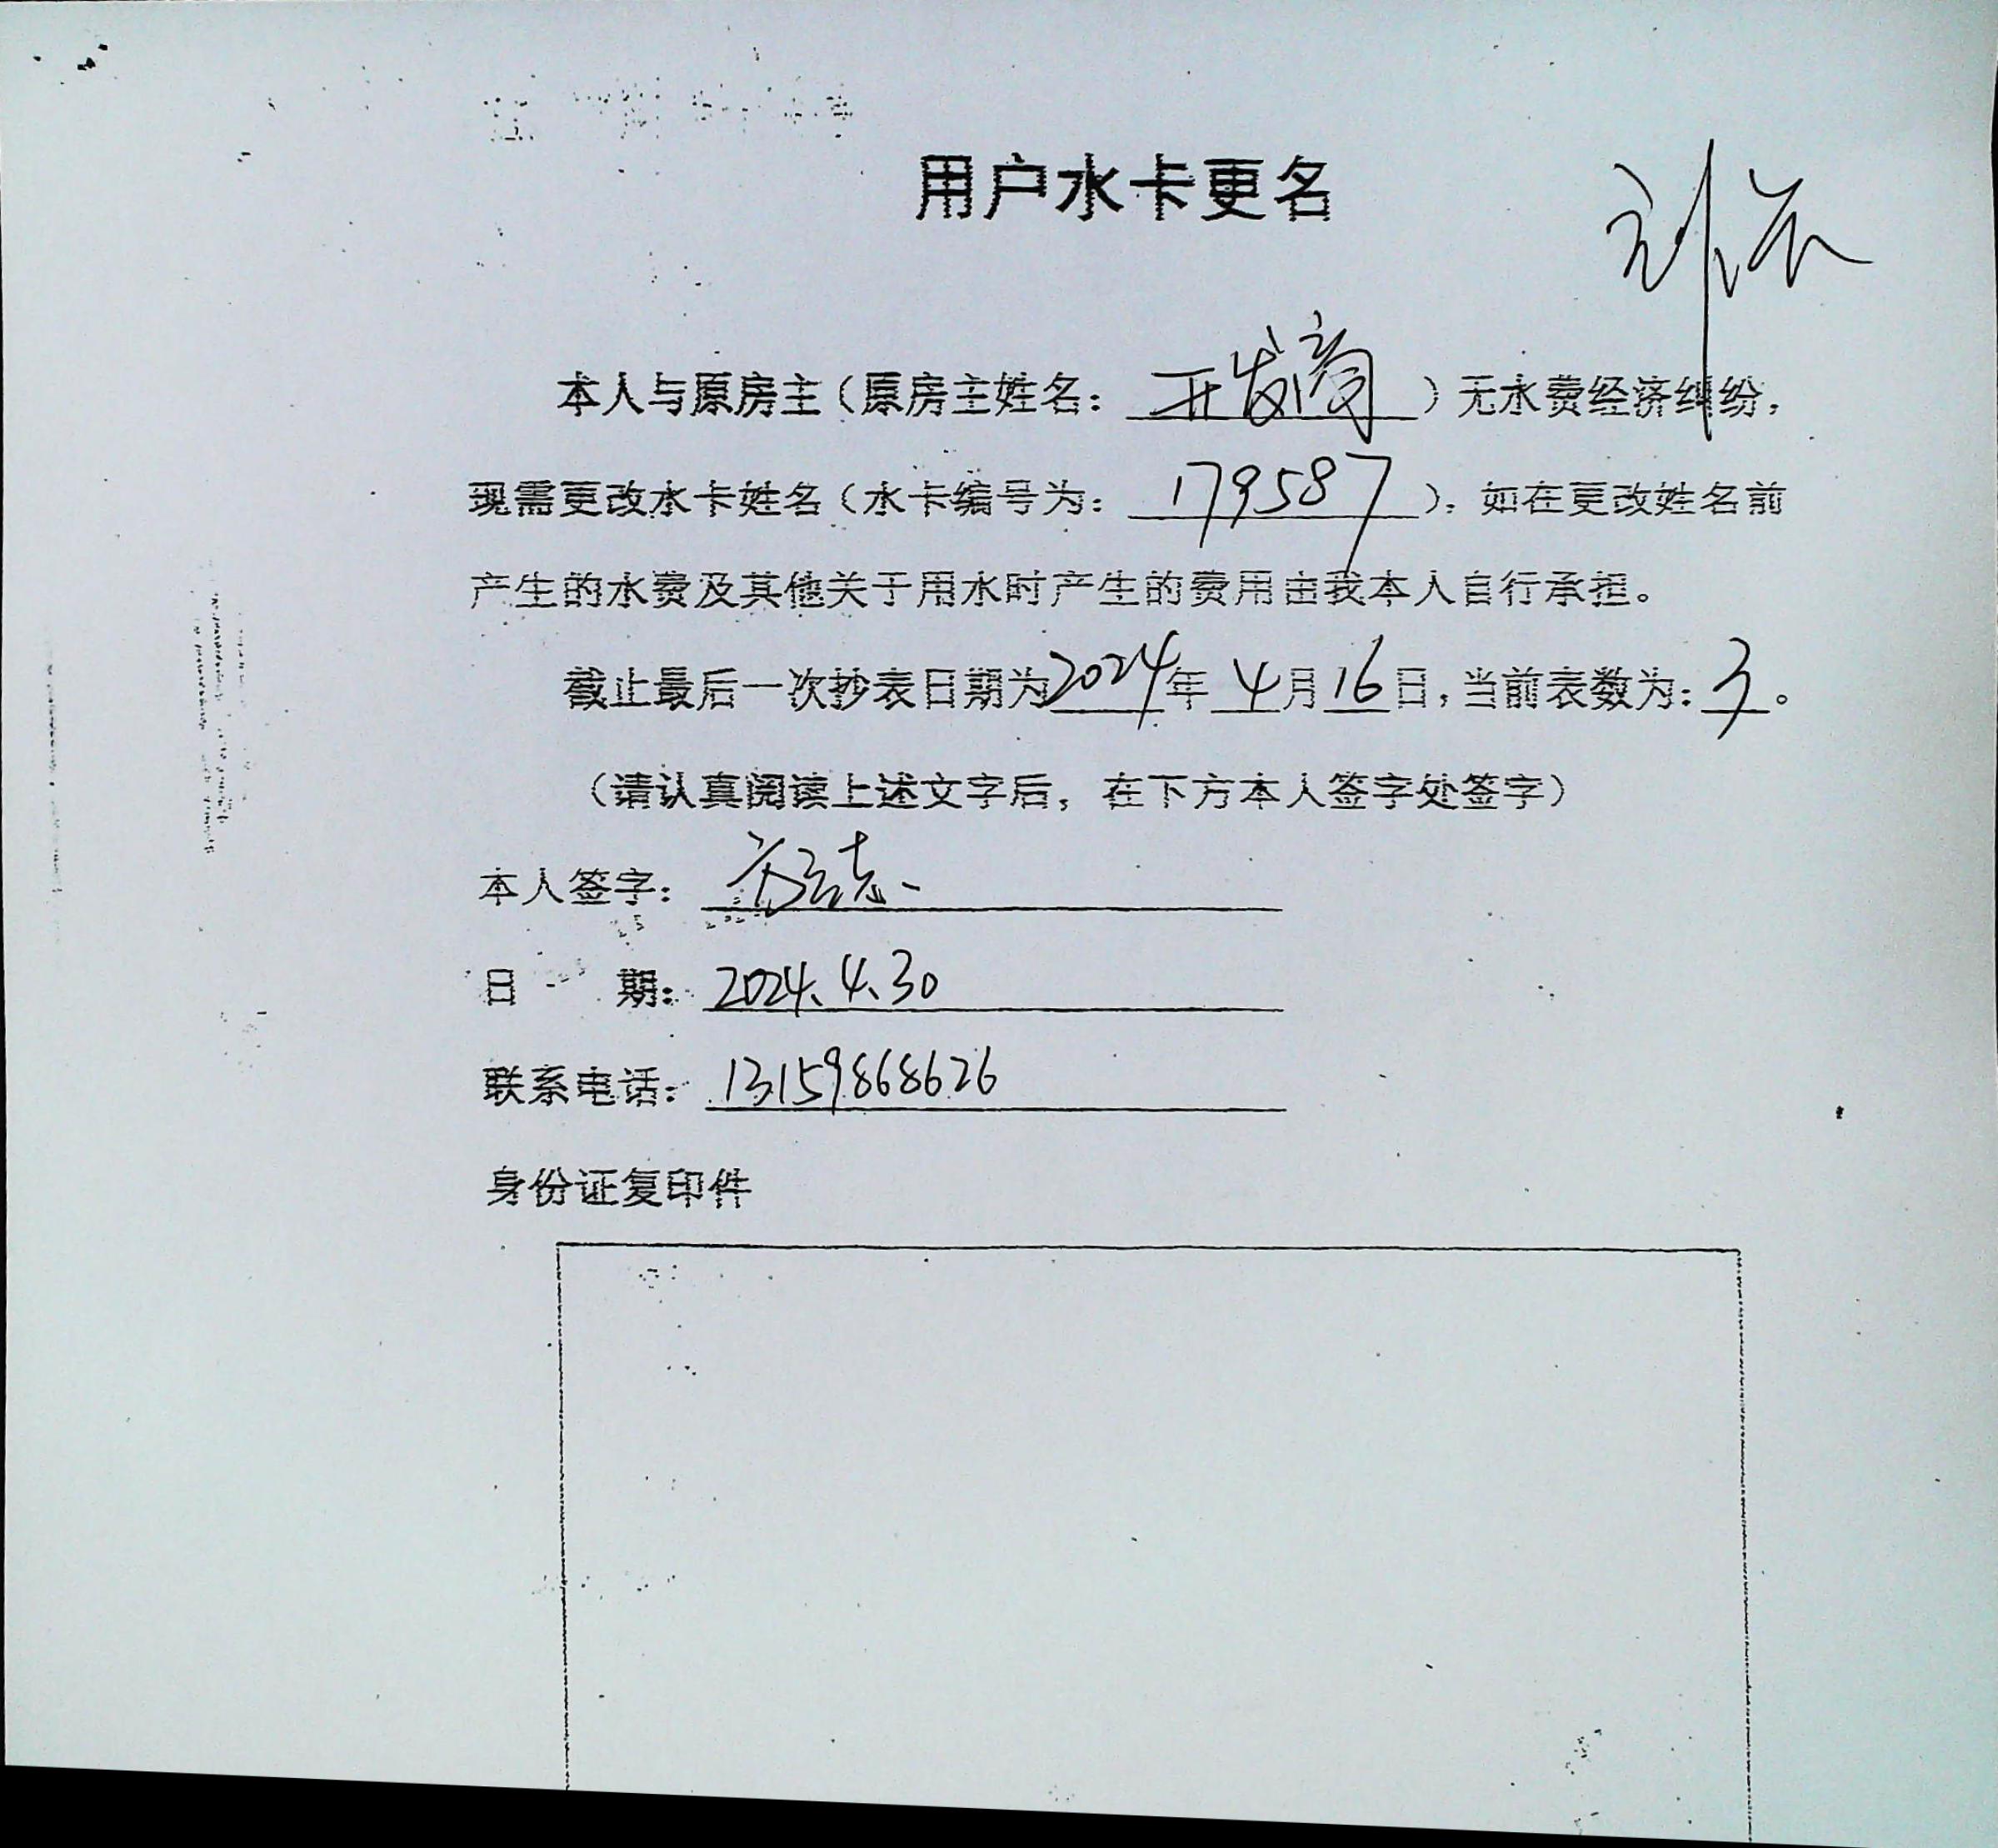 用户水卡更名
本人与原房主（原房主姓名：开发商）无水费经济纠纷，
现需更改水卡姓名（水卡编号为：179587）。如在更改姓名前
产生的水费及其他关于用水时产生的费用由我本人自行承担。
截止最后一次抄表日期为2024年4月16日，当前表数为：3。
（请认真阅读上述文字后，在下方本人签字处签字）
本人签字：
日期：2024.4.30
联系电话：13159868626
身份证复印件